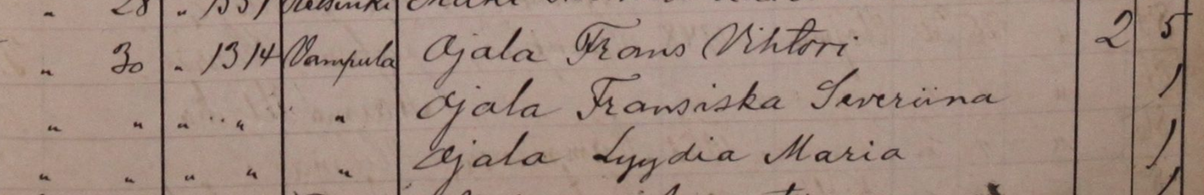 " 28 " 1331 Helsinki
" 30 " 1314 Vampula Ojala Frans Vihtori 2 5
" " " " " Ojala Fransiska Severiina 1
" " " " " Ojala Lyydia Maria 1